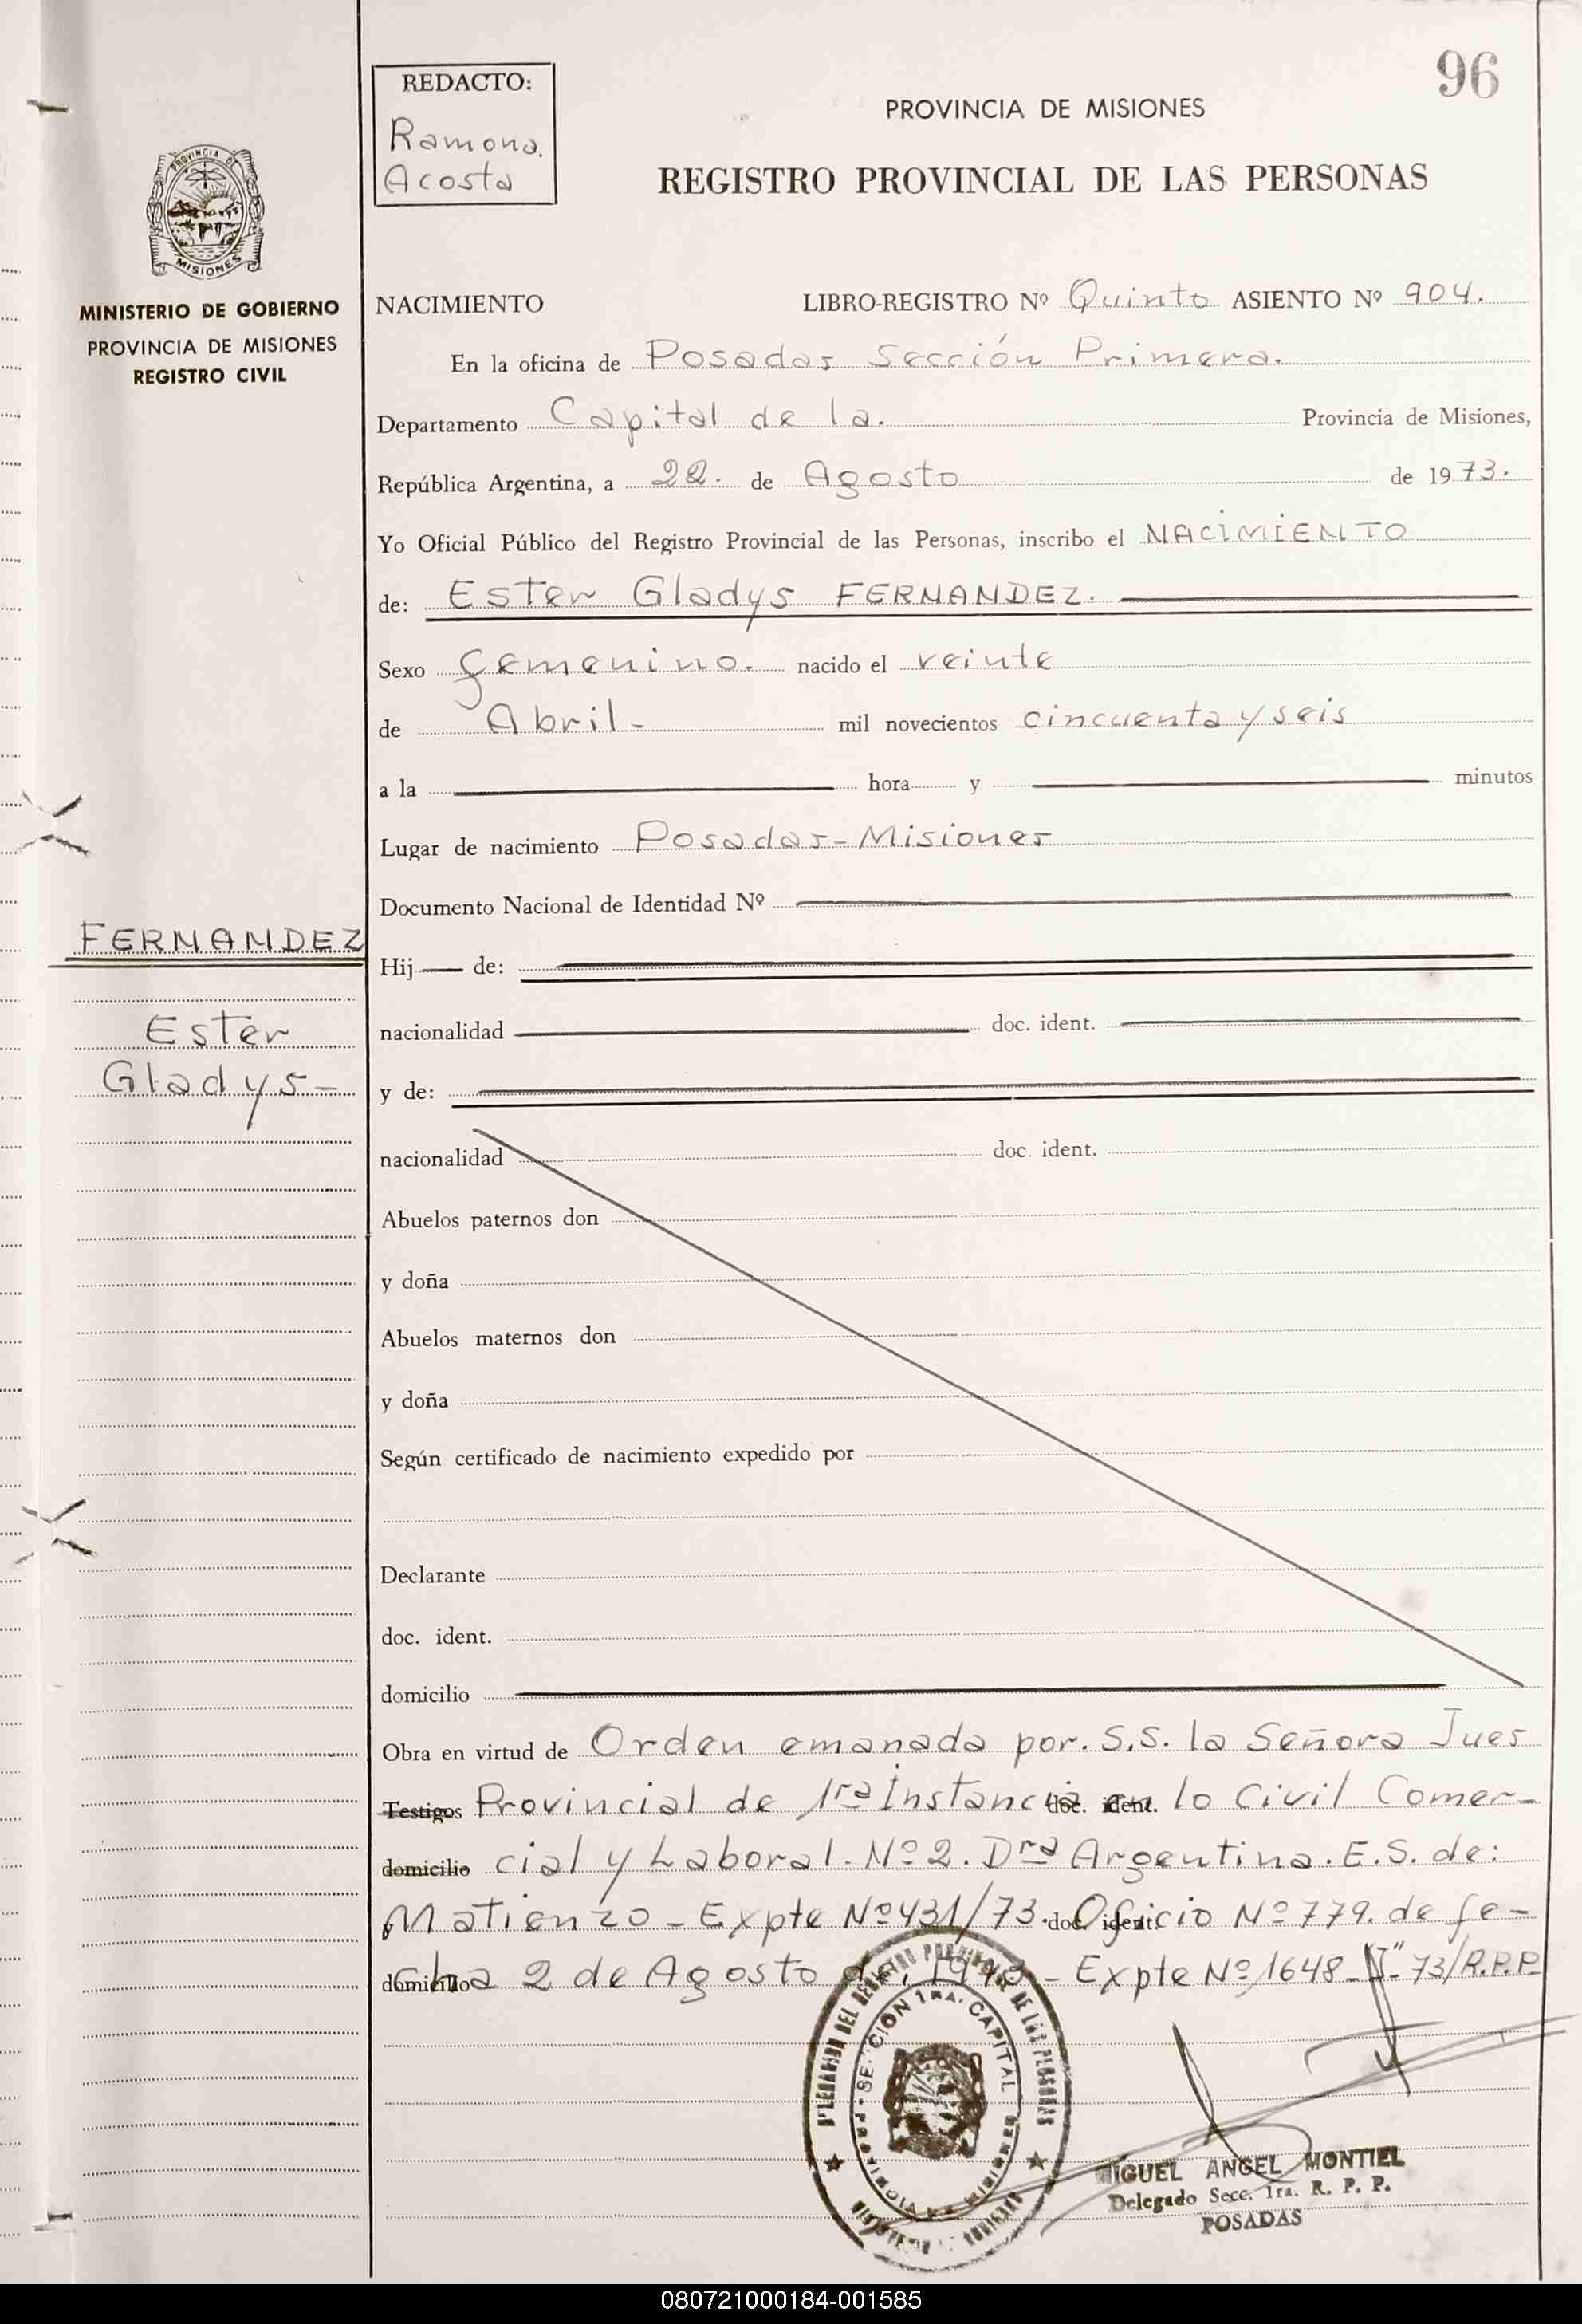 96
REDACTO:
Ramona.
Acosta
PROVINCIA DE MISIONES
REGISTRO PROVINCIAL DE LAS PERSONAS
PROVINCIA DE
MISIONES
MINISTERIO DE GOBIERNO
PROVINCIA DE MISIONES
REGISTRO CIVIL
NACIMIENTO LIBRO-REGISTRO Nº Quinto ASIENTO Nº 904.
En la oficina de Posadas Sección Primera.
Departamento Capital de la. Provincia de Misiones,
República Argentina, a 22. de Agosto de 1973.
Yo Oficial Público del Registro Provincial de las Personas, inscribo el NACIMIENTO
de: Ester Gladys FERNANDEZ.
Sexo femenino. nacido el veinte
de Abril- mil novecientos cincuenta y seis
a la hora y minutos
Lugar de nacimiento Posadas-Misiones
Documento Nacional de Identidad Nº
FERNANDEZ
Hij de:
Ester
nacionalidad doc. ident.
Gladys-
y de:
nacionalidad doc. ident.
Abuelos paternos don
y doña
Abuelos maternos don
y doña
Según certificado de nacimiento expedido por
Declarante
doc. ident.
domicilio
Obra en virtud de Orden emanada por. S.S. la Señora Jues
Testigos Provincial de 1ra Instancia doc. ident. en lo Civil Comer-
domicilio cial y Laboral. Nº 2. Dra Argentina. E.S. de:
y Matienzo - Expte Nº 431/73. doc. ident. Oficio Nº 779. de fe-
domicilio cha 2 de Agosto de 1973 - Expte Nº 1648-"I"-73/R.P.P.
DELEGACION DEL REGISTRO PROVINCIAL DE LAS PERSONAS
SECCION 1RA. CAPITAL
PROVINCIA DE MISIONES
MIGUEL ANGEL MONTIEL
Delegado Secc. 1ra. R. P. P.
POSADAS
080721000184-001585